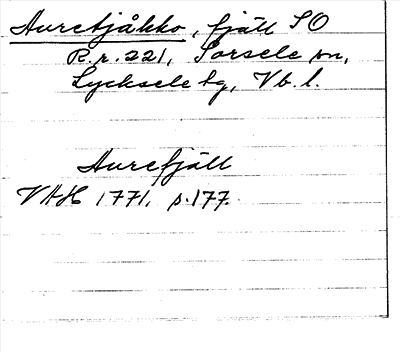 Auretjåkko, fjäll SO
R.r. 221, Sorsele sn,
Lycksele tg, Vb. l.
Aurefjäll
VAH 1771, s. 177.